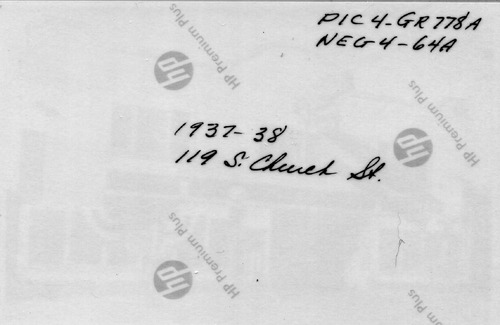 PIC 4-GR778A
NEG 4-64A
HP Premium Plus
hp
1937-38
119 S. Church St.
HP Premium Plus
hp
HP Premium Plus
hp
HP Premium Plus